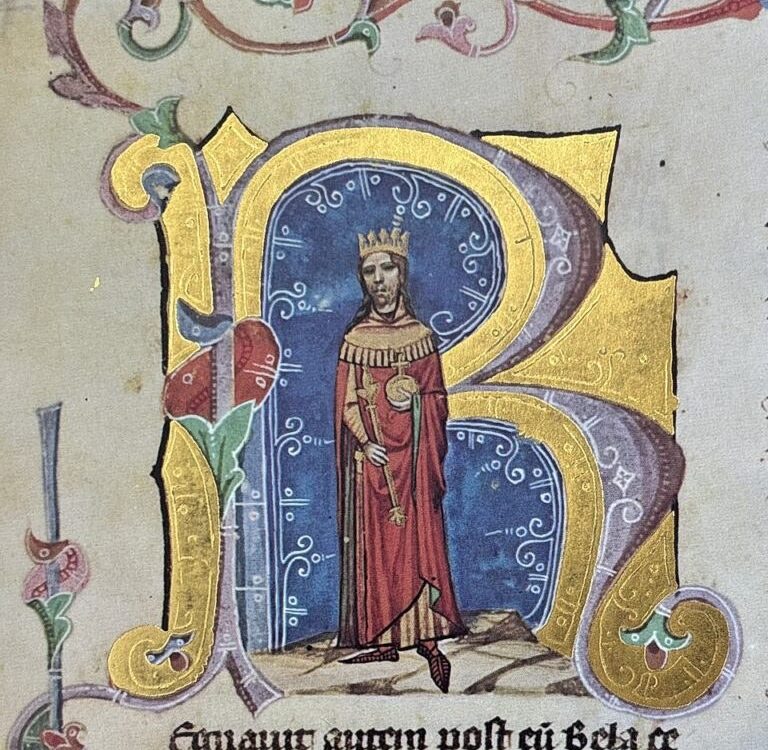 REgnauit autem post eū Bela ce